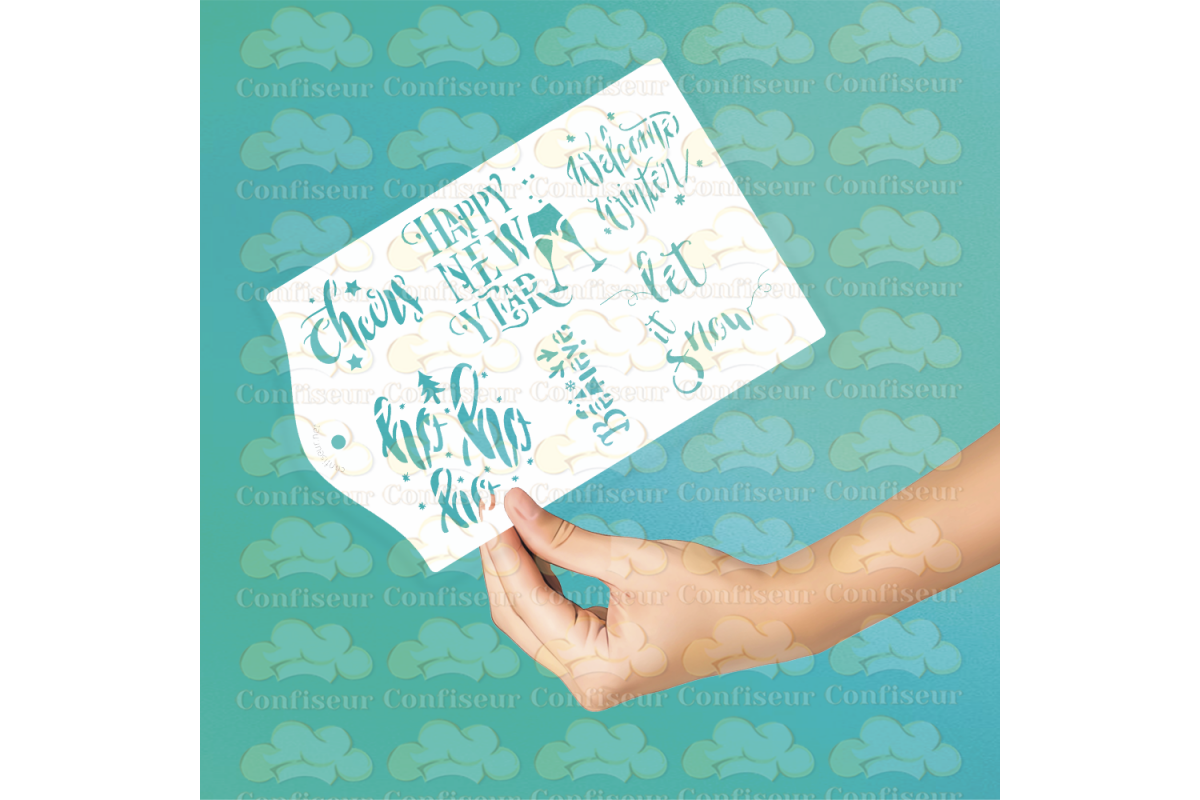 Welcome
Winter
HAPPY
NEW
YEAR
Cheers
let
it
Snow
Believe
ho ho
ho
Confiseur Confiseur Confiseur Confiseur Confiseur
Confiseur Confiseur Confiseur Confiseur Confiseur
Confiseur Confiseur Confiseur Confiseur Confiseur
Confiseur Confiseur Confiseur Confiseur Confiseur
Confiseur Confiseur Confiseur Confiseur Confiseur
Confiseur Confiseur Confiseur Confiseur Confiseur
Confiseur Confiseur Confiseur Confiseur Confiseur
Confiseur Confiseur Confiseur Confiseur Confiseur